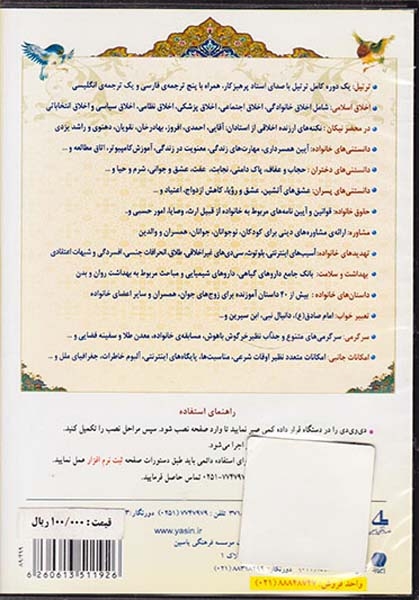 ترتیل: یک دوره کامل ترتیل با صدای استاد پرهیزکار، همراه با پنج ترجمه‌ی فارسی و یک ترجمه‌ی انگلیسی
اخلاق اسلامی: شامل اخلاق خانوادگی، اخلاق اجتماعی، اخلاق پزشکی، اخلاق نظامی، اخلاق سیاسی و اخلاق انتخاباتی
در محضر نیکان: نکته‌های ارزنده اخلاقی از استادان: آقایی، احمدی، افروز، بهادرخان، نقویان، دهنوی و راشد یزدی
دانستنی‌های خانواده: آیین همسرداری، مهارت‌های زندگی، معنویت در زندگی، آموزش کامپیوتر، اتاق مطالعه و ...
دانستنی‌های دختران: حجاب و عفاف، پاک دامنی، نجابت، عفت، عشق و جوانی، شرم و حیا و ...
دانستنی‌های پسران: عشق‌های آتشین، عشق و رؤیا، کاهش ازدواج، اعتیاد و ...
حاوق خانواده: قوانین و آیین نامه‌های مربوط به خانواده از قبیل ارث، وصایا، امور حسبی و...
مشاوره: ارائه‌ی مشاوره‌های دینی برای کودکان، نوجوانان، جوانان، همسران و والدین
تهدیدهای خانواده: آسیب‌های اینترنتی، بلوتوث، سی‌دی‌های غیراخلاقی، طلاق، انحرافات جنسی، افسردگی و شبهات اعتقادی
بهداشت و سلامت: بانک جامع داروهای گیاهی، داروهای شیمیایی و مباحث مربوط به بهداشت روان و بدن
داستان‌های خانواده: بیش از ۴۰ داستان آموزنده برای زوج‌های جوان، همسران و سایر اعضای خانواده
تعبیر خواب: امام صادق(ع)، دانیال نبی، ابن سیرین و ...
سرگرمی: سرگرمی‌های متنوع و جذاب نظیر خرگوش باهوش، مسابقه‌ی خانواده، معدن طلا و سفینه فضایی و ...
امکانات جانبی: امکانات متعدد نظیر اوقات شرعی، مناسبت‌ها، پایگاه‌های اینترنتی، آلبوم خاطرات، جغرافیای ملل و ...
راهنمای استفاده
دی‌وی‌دی را در دستگاه قرار داده کمی صبر نمایید تا وارد صفحه نصب شود. سپس مراحل نصب را تکمیل کنید.
اجرا می‌شود.
برای استفاده دائمی باید طبق دستورات صفحه ثبت نرم افزار عمل نمایید
۰۲۵۱-۷۷۴۷۹۷ تماس حاصل فرمایید.
تلفن: ۷۷۴۷۹۷۹ (۰۲۵۱) دورنگار:
www.yasin.ir
موسسه فرهنگی یاسین
پلاک ۱
دورنگار:
واحد فروش: ۸۸۸۴۸۷۴۷ (۰۲۱)
قیمت: ۱۰۰/۰۰۰ ریال
6260613511926